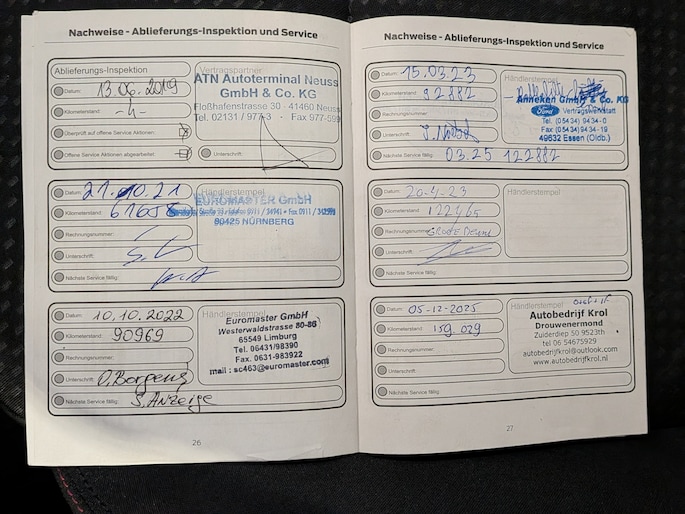 Nachweise - Ablieferungs-Inspektion und Service
Ablieferungs-Inspektion
Vertragspartner
Datum: 13.06.2019
Kilometerstand: -4-
Überprüft auf offene Service Aktionen:
Offene Service Aktionen abgearbeitet:
Unterschrift:
ATN Autoterminal Neuss
GmbH & Co. KG
Floßhafenstraße 30 - 41460 Neuss
Tel. 02131 / 977-3 • Fax 977-599
Datum: 21.10.21
Händlerstempel
Kilometerstand: 61658
Rechnungsnummer:
Unterschrift:
Nächste Service fällig:
EUROMASTER GmbH
90425 NÜRNBERG
Datum: 10.10.2022
Händlerstempel
Kilometerstand: 90969
Rechnungsnummer:
Unterschrift:
Nächste Service fällig: S. Anzeige
Euromaster GmbH
Westerwaldstrasse 80-86
65549 Limburg
Tel. 06431/98390
Fax. 0631-983922
mail : sc463@euromaster.com
26
Nachweise - Ablieferungs-Inspektion und Service
Datum: 15.03.23
Händlerstempel
Kilometerstand: 92882
Rechnungsnummer:
Unterschrift:
Nächste Service fällig: 03.25 122882
Anneken GmbH & Co. KG
Ford Vertragswerkstatt
Tel. (0 54 34) 94 34 - 0
Fax (0 54 34) 94 34 - 19
49632 Essen (Oldb.)
Datum: 20-4-23
Händlerstempel
Kilometerstand:
Rechnungsnummer: GROOTE BEURT
Unterschrift:
Nächste Service fällig:
Datum: 05-12-2025
Händlerstempel
Kilometerstand: 159.029
Rechnungsnummer:
Unterschrift:
Nächste Service fällig:
Autobedrijf Krol
Drouwenermond
Zuiderdiep 50 9523th
tel 06 54675929
autobedrijfkrol@outlook.com
www.autobedrijfkrol.nl
27